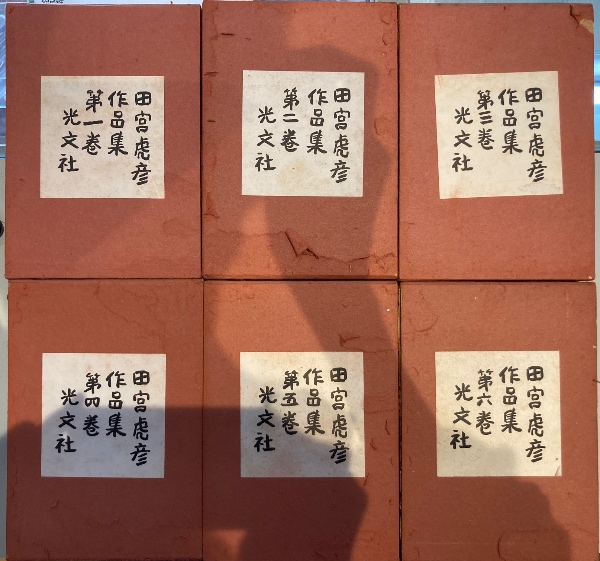 田宮虎彦
作品集
第一巻
光文社
田宮虎彦
作品集
第二巻
光文社
田宮虎彦
作品集
第三巻
光文社
田宮虎彦
作品集
第四巻
光文社
田宮虎彦
作品集
第五巻
光文社
田宮虎彦
作品集
第六巻
光文社